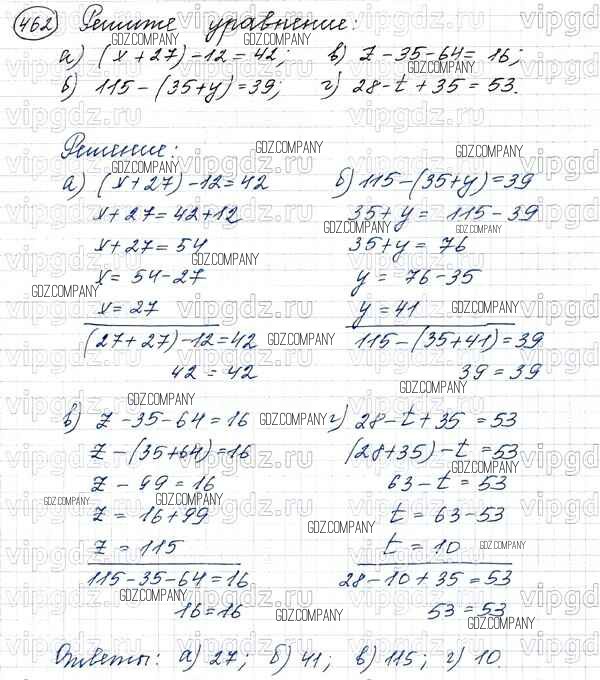 462 Решите уравнение:
а) (x+27)-12=42; в) z-35-64=16;
б) 115-(35+y)=39; г) 28-t+35=53.
Решение:
а) (x+27)-12=42
x+27=42+12
x+27=54
x=54-27
x=27
(27+27)-12=42
42=42
б) 115-(35+y)=39
35+y=115-39
35+y=76
y=76-35
y=41
115-(35+41)=39
39=39
в) z-35-64=16
z-(35+64)=16
z-99=16
z=16+99
z=115
115-35-64=16
16=16
г) 28-t+35=53
(28+35)-t=53
63-t=53
t=63-53
t=10
28-10+35=53
53=53
Ответы: а) 27; б) 41; в) 115; г) 10.
vipgdz.ru
GDZ.COMPANY